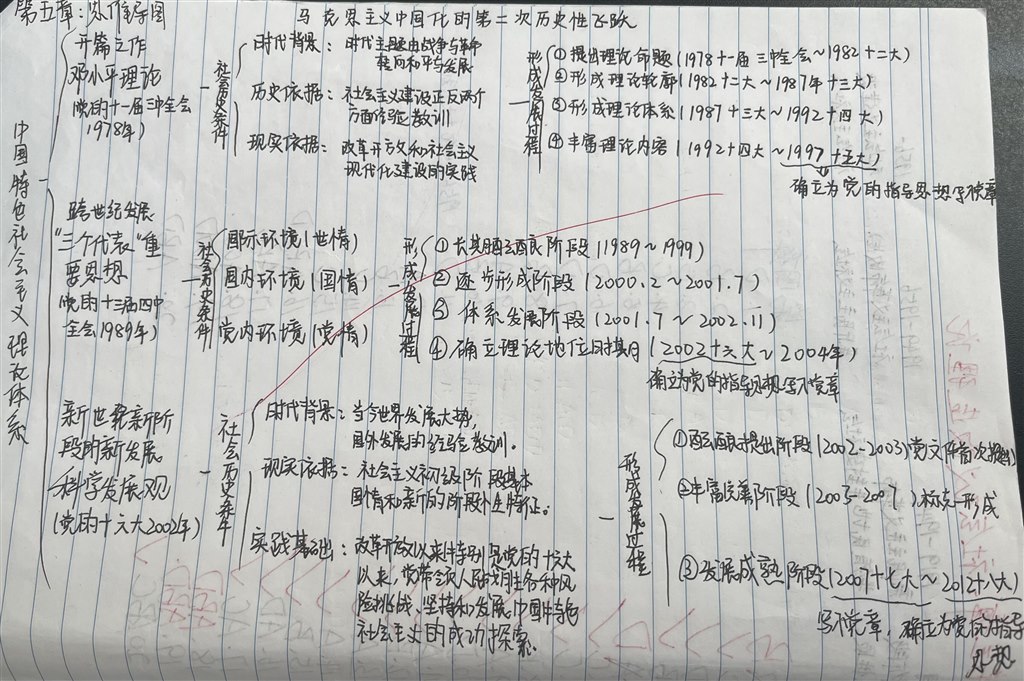 第五章:思维导图
马克思主义中国化的第二次历史性飞跃
中国特色社会主义理论体系
开篇之作
邓小平理论
(党的十一届三中全会
1978年)
社会历史条件
时代背景: 时代主题由战争与革命
转向和平与发展
历史依据: 社会主义建设正反两个
方面经验教训
现实依据: 改革开放和社会主义
现代化建设的实践
形成发展过程
①提出理论命题(1978十一届三中全会~1982十二大)
②形成理论轮廓(1982十二大~1987年十三大)
③形成理论体系(1987十三大~1992十四大)
④丰富理论内容(1992十四大~1997十五大)
确立为党的指导思想写入党章
跨世纪发展
"三个代表"重
要思想
(党的十三届四中
全会1989年)
社会历史条件
国际环境(世情)
国内环境(国情)
党内环境(党情)
形成发展过程
①长期酝酿阶段(1989~1999)
②逐步形成阶段(2000.2~2001.7)
③体系发展阶段(2001.7~2002.11)
④确立理论地位时期(2002十六大~2004年)
确立为党的指导思想写入党章
新世纪新阶
段的新发展
科学发展观
(党的十六大2002年)
社会历史条件
时代背景: 当今世界发展大势,
国外发展的经验教训。
现实依据: 社会主义初级阶段基本
国情和新的阶段性特征。
实践基础: 改革开放以来特别是党的十六大
以来,党带领人民战胜各种风
险挑战、坚持和发展中国特色
社会主义的成功探索。
形成发展过程
①酝酿提出阶段(2002-2003)党文件首次提出
②丰富完善阶段(2003-2007)标志形成
③发展成熟阶段(2007十七大~2012十八大)
写入党章, 确立为党的指导
思想